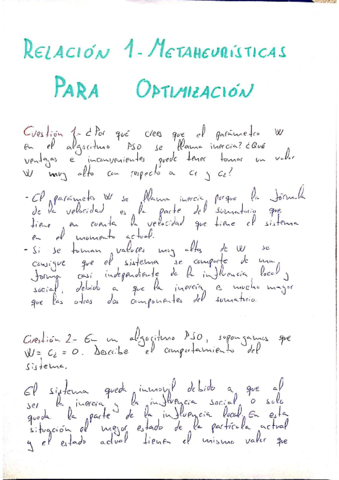 RELACIÓN 1 - METAHEURÍSTICAS
PARA OPTIMIZACIÓN
Cuestión 1- ¿Por qué crees que el parámetro W
en el algoritmo PSO se llama inercia? ¿Qué
ventajas e inconvenientes puede tener tomar un valor
W muy alto con respecto a C1 y C2?
- El parámetro W se llama inercia porque la fórmula
de la velocidad es la parte del sumatorio que
tiene en cuenta la velocidad que tiene el sistema
en el momento actual.
- Si se toman valores muy altos de W se
consigue que el sistema se comporte de una
forma casi independiente de la influencia local y
social, debido a que la inercia es mucho mayor
que las otras dos componentes del sumatorio.
Cuestión 2- En un algoritmo PSO, supongamos que
W = C2 = 0. Describe el comportamiento del
sistema.
El sistema queda inmovil debido a que al
ser la inercia y la influencia social 0 solo
queda la parte de la influencia local. En esta
situación el mejor estado de la partícula actual
y el estado actual tienen el mismo valor que